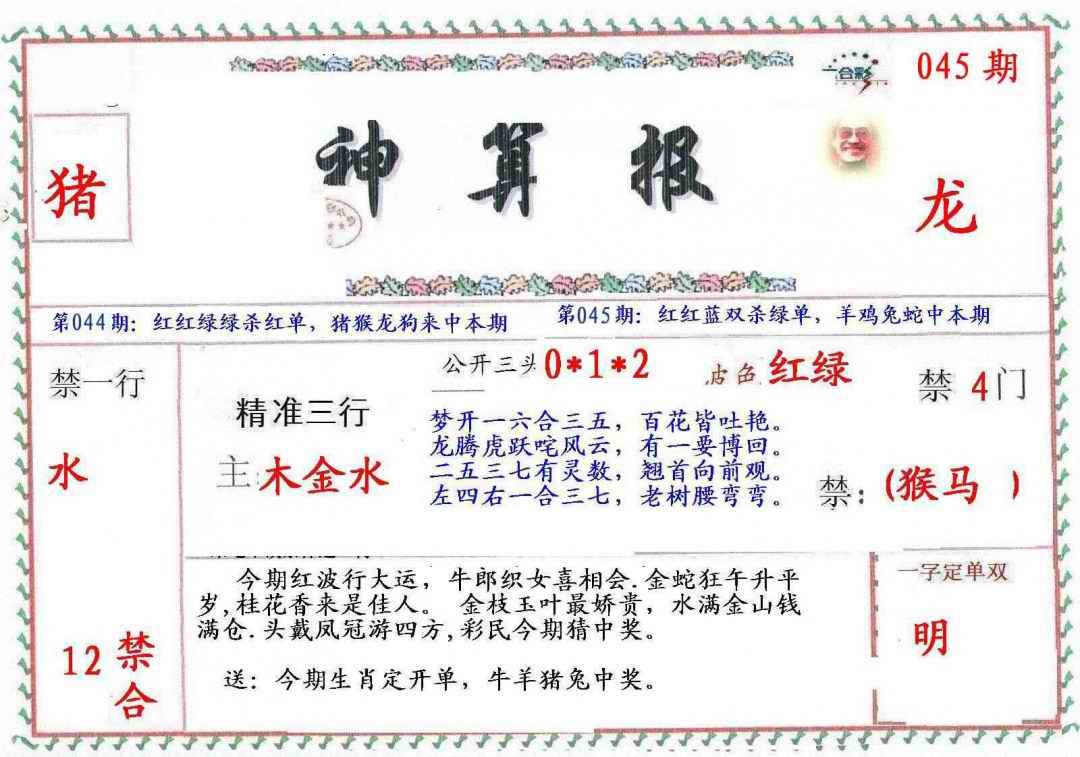 045 期
合彩
猪
神算报
龙
第044期：红红绿绿杀红单，猪猴龙狗来中本期
第045期：红红蓝双杀绿单，羊鸡兔蛇中本期
禁一行
水
12 禁合
公开三头 0*1*2
皮色 红绿
精准三行
主:木金水
梦开一六合三五，百花皆吐艳。
龙腾虎跃咤风云，有一要博回。
二五三七有灵数，翘首向前观。
左四右一合三七，老树腰弯弯。
禁 4门
禁：(猴马 )
今期红波行大运，牛郎织女喜相会.金蛇狂午升平
岁,桂花香来是佳人。 金枝玉叶最娇贵，水满金山钱
满仓.头戴凤冠游四方,彩民今期猜中奖。
送：今期生肖定开单，牛羊猪兔中奖。
一字定单双
明